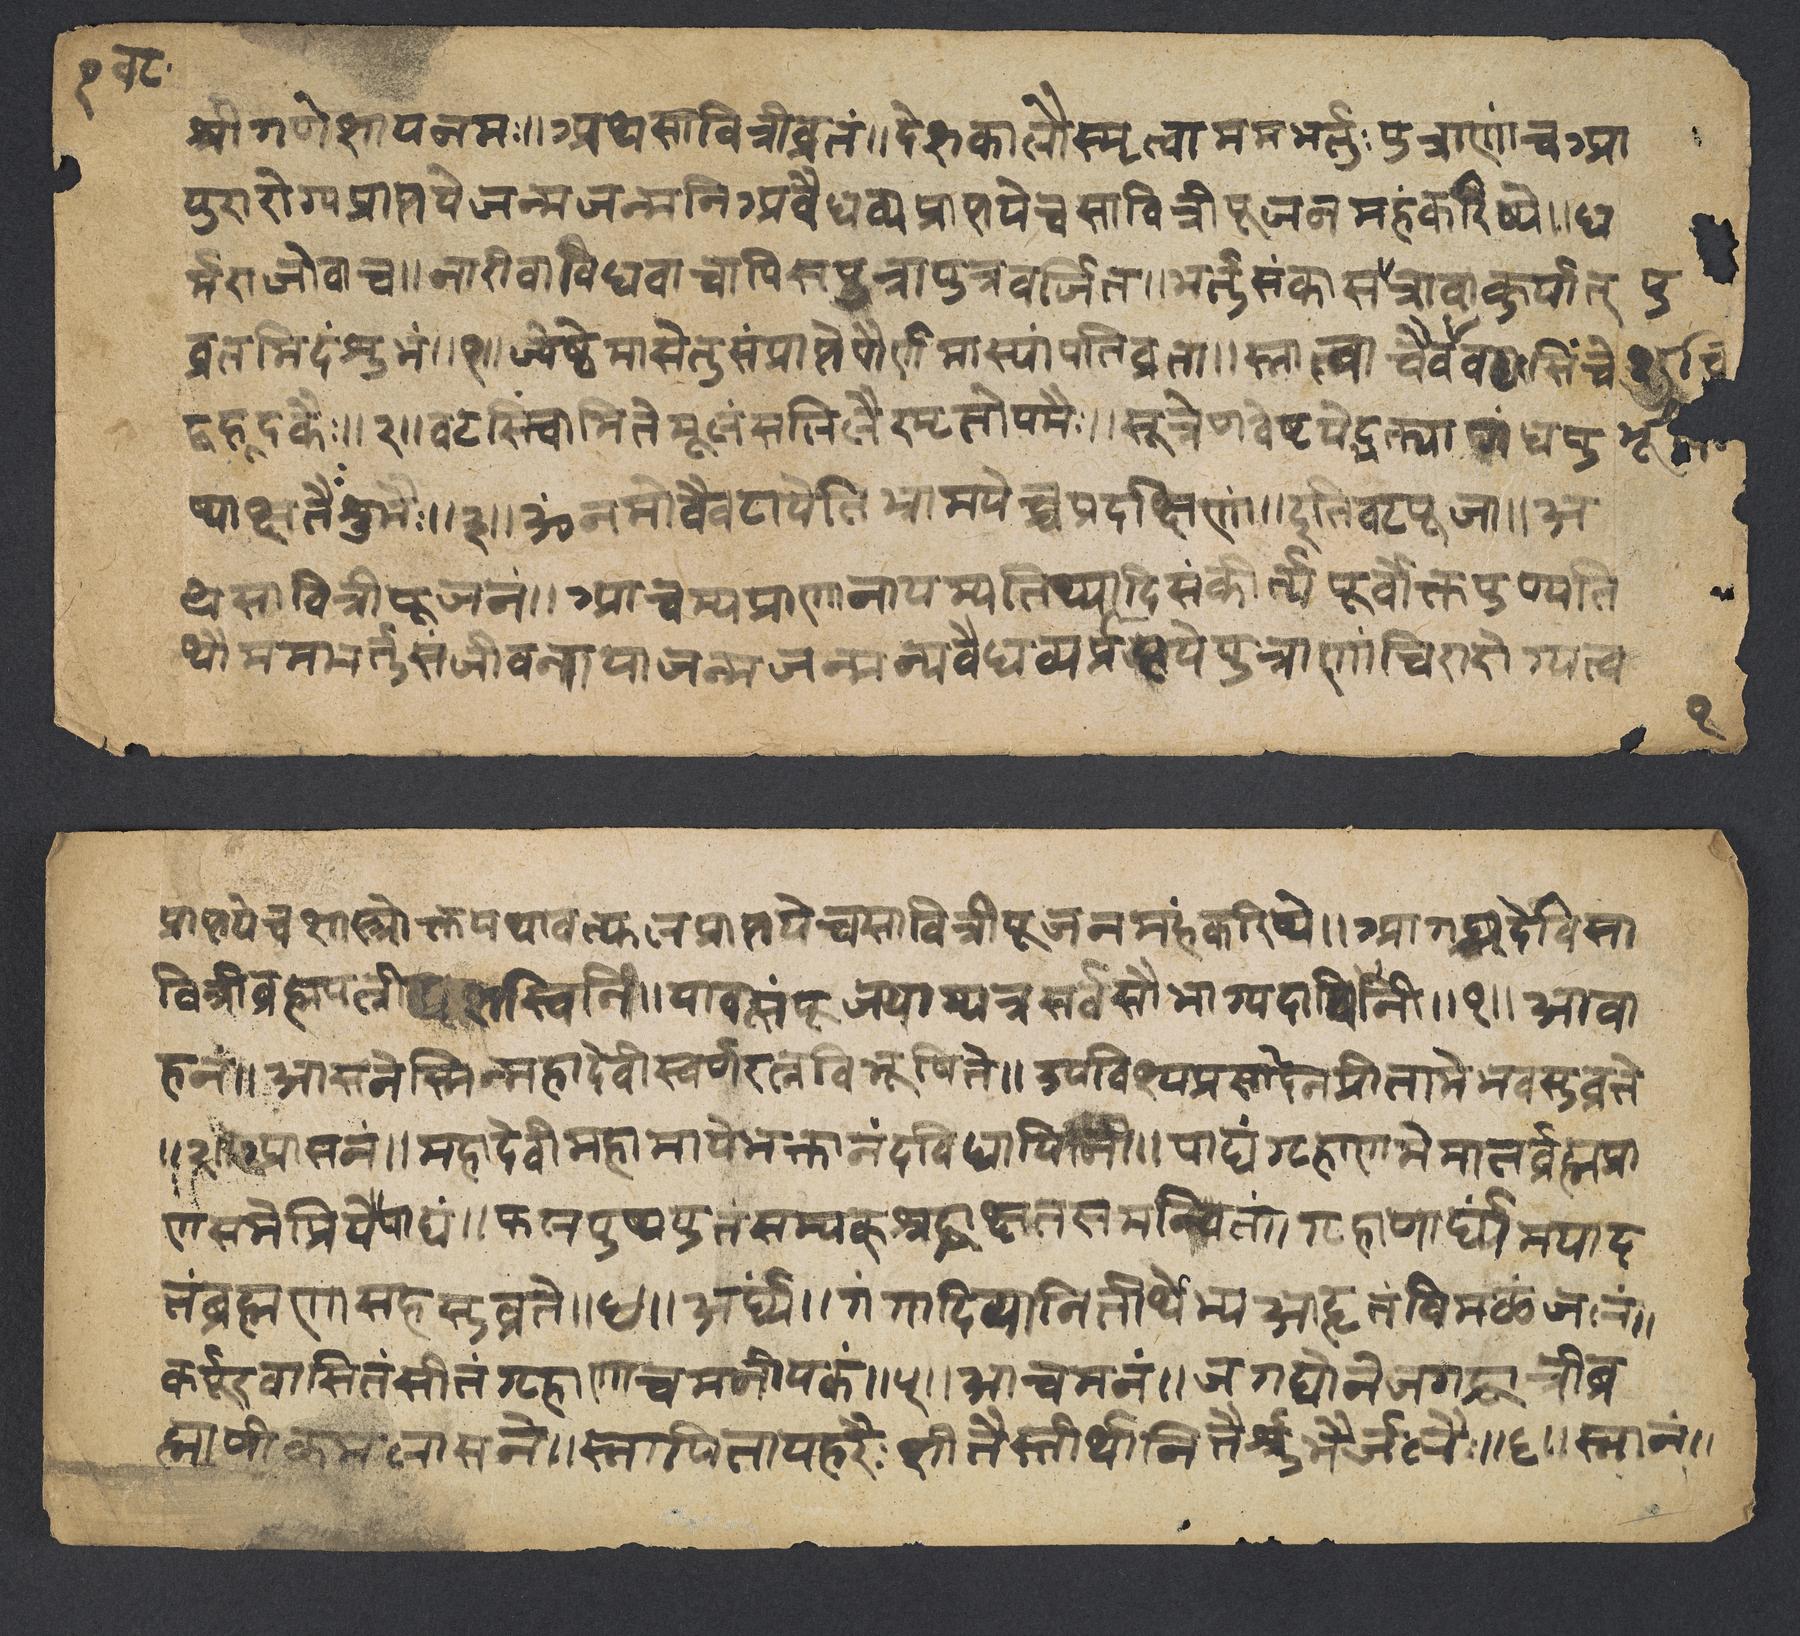 १ वट.
श्रीगणेशायनमः।। अथसावित्रीव्रतं।। देशकालौस्मृत्वाममभर्तुःपुत्राणांचआ
युरारोग्यप्राप्तयेजन्मजन्मनिअवैधव्यप्राप्तयेचसावित्रीपूजनमहंकरिष्ये।। ध
र्मराजोवाच।। नारीवाविधवाचापिसपुत्रापुत्रवर्जिता।। भर्तुसंकासंत्रावाकुर्यात्
व्रतमिदंशुभं।।१।। ज्येष्ठेमासेतुसंप्राप्तेपौर्णिमास्यांपतिव्रता।। स्नात्वाचैव सिंचे
द्बहूदकैः।।२।। वटसिंचामितेमूलंसलिलैरमृतोपमैः।। सूत्रेणवेष्टयेद्भक्त्यागंधपु
ष्याक्षतैःशुभैः।।३।। ॐनमोवैवटायेतिभ्रामयेच्चप्रदक्षिणां।। इतिवटपूजा।। अ
थसावित्रीपूजनं।। आचम्यप्राणानायम्यतिथ्यादिसंकीर्त्यपूर्वोक्तपुण्यति
थौममभर्तुसंजीवन्तायाजन्मजन्मन्यवैधव्यप्राप्तयेपुत्राणांचिरारोग्यत्व
१
प्राप्तयेचशास्त्रोक्तयथावत्फलप्राप्तयेचसावित्रीपूजनमहंकरिष्ये।। आगछदेविसा
वित्रीब्रह्मपत्नी शस्विनिं।। यावत्संपूजयाम्यत्रसर्वसौभाग्यदायिनी।।१।। आवा
हनं।। आसनेस्मिन्महादेवीस्वर्णरत्नविभूषिते।। उपविश्यप्रसादेनप्रीतामेभवसुव्रते
।।२।। आसनं।। महादेवीमहामायेभक्तानंदविधायिनी।। पाद्यंगृहाणमेमातर्ब्रह्मप्रा
णसमेप्रियेपाद्यं।। फलपुष्पयुतंसम्यक्श्रद्धाक्षतसमन्वितां।। गृहाणार्घ्यमयाद
तंब्रह्मणासहसुव्रते।।४।। अर्घ्यं।। गंगादिव्यानितीर्थेभ्यआहृतंविमळंजलं।।
कर्पूरवासितंसीतंगृहाणाचमनीयकं।।५।। आचमनं।। जगद्योनेजगद्धात्रीब्र
ह्माणीकमलासने।। स्नापितापहरैःशीतैस्तीर्थानितैर्शुभैर्जलैः।।६।। स्नानं।।